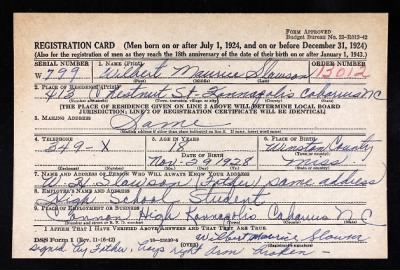 FORM APPROVED
Budget Bureau No. 33-R012-42
REGISTRATION CARD (Men born on or after July 1, 1924, and on or before December 31, 1924)
(Also for the registration of men as they reach the 18th anniversary of the date of their birth on or after January 1, 1943.)
SERIAL NUMBER 1. NAME (Print) ORDER NUMBER
W 799 Wilbert Maurice Slawson 13012
(First) (Middle) (Last)
2. PLACE OF RESIDENCE (Print)
413 Chestnut St. Kannapolis Cabarrus N C
(Number and street) (Town, township, village, or city) (County) (State)
[THE PLACE OF RESIDENCE GIVEN ON LINE 2 ABOVE WILL DETERMINE LOCAL BOARD
JURISDICTION; LINE 2 OF REGISTRATION CERTIFICATE WILL BE IDENTICAL]
3. MAILING ADDRESS
Same
4. TELEPHONE 5. AGE IN YEARS 6. PLACE OF BIRTH
349-X 18 Winston County
DATE OF BIRTH
Nov-29 1928 Miss
7. NAME AND ADDRESS OF PERSON WHO WILL ALWAYS KNOW YOUR ADDRESS
Slawson (Father) same address
8. EMPLOYER'S NAME AND ADDRESS
High School Student
Cannon High Kannapolis Cabarrus N C
I AFFIRM THAT I HAVE VERIFIED ABOVE ANSWERS AND THAT THEY ARE TRUE.
DSS Form 1 (Rev. 11-16-42) Wilbert Maurice Slawson
Signed by Father, boys right arm broken